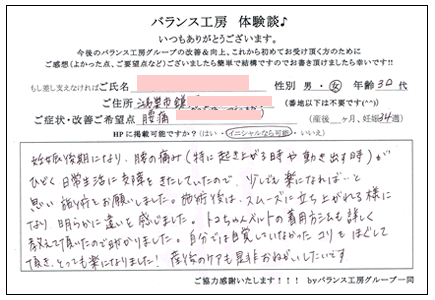 バランス工房 体験談♪
いつもありがとうございます。
今後のバランス工房グループの改善&向上、これから初めてお受け頂く方のために
ご感想(よかった点、ご要望点など)ございましたら簡単で結構ですのでお書き頂けましたら幸いです!!
もし差し支えなければご氏名 性別 男・女 年齢 30代
ご住所 (番地以下は不要です(^^))
ご症状・改善ご希望点 腰痛 (産後 ヶ月、妊娠34週)
HPに掲載可能ですか?(はい・イニシャルなら可能・いいえ)
妊娠後期になり、腰の痛み(特に起き上がる時や動き出す時)が
ひどく日常生活に支障をきたしていたので、少しでも楽になれば…と
思い施術をお願いしました。施術後は、スムーズに立ち上がれる様に
なり、明らかに違いを感じました。トコちゃんベルトの着用方法も詳しく
教えて頂いたので助かりました。自分では自覚していなかったコリもほぐして
頂き、とっても楽になりました!産後のケアも是非おねがいしたいです
ご協力感謝いたします!!! byバランス工房グループ一同